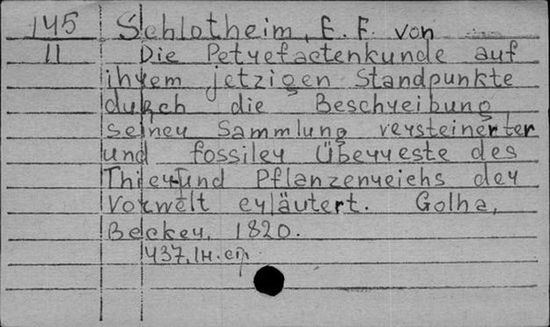 145 Schlotheim, E. F. von
11 Die Petrefactenkunde auf
ihrem jetzigen Standpunkte
durch die Beschreibung
seiner Sammlung versteinerter
und fossiler Überreste des
Thier-und Pflanzenreichs der
Vorwelt erläutert. Gotha,
Becker, 1820.
437, IH. стр.